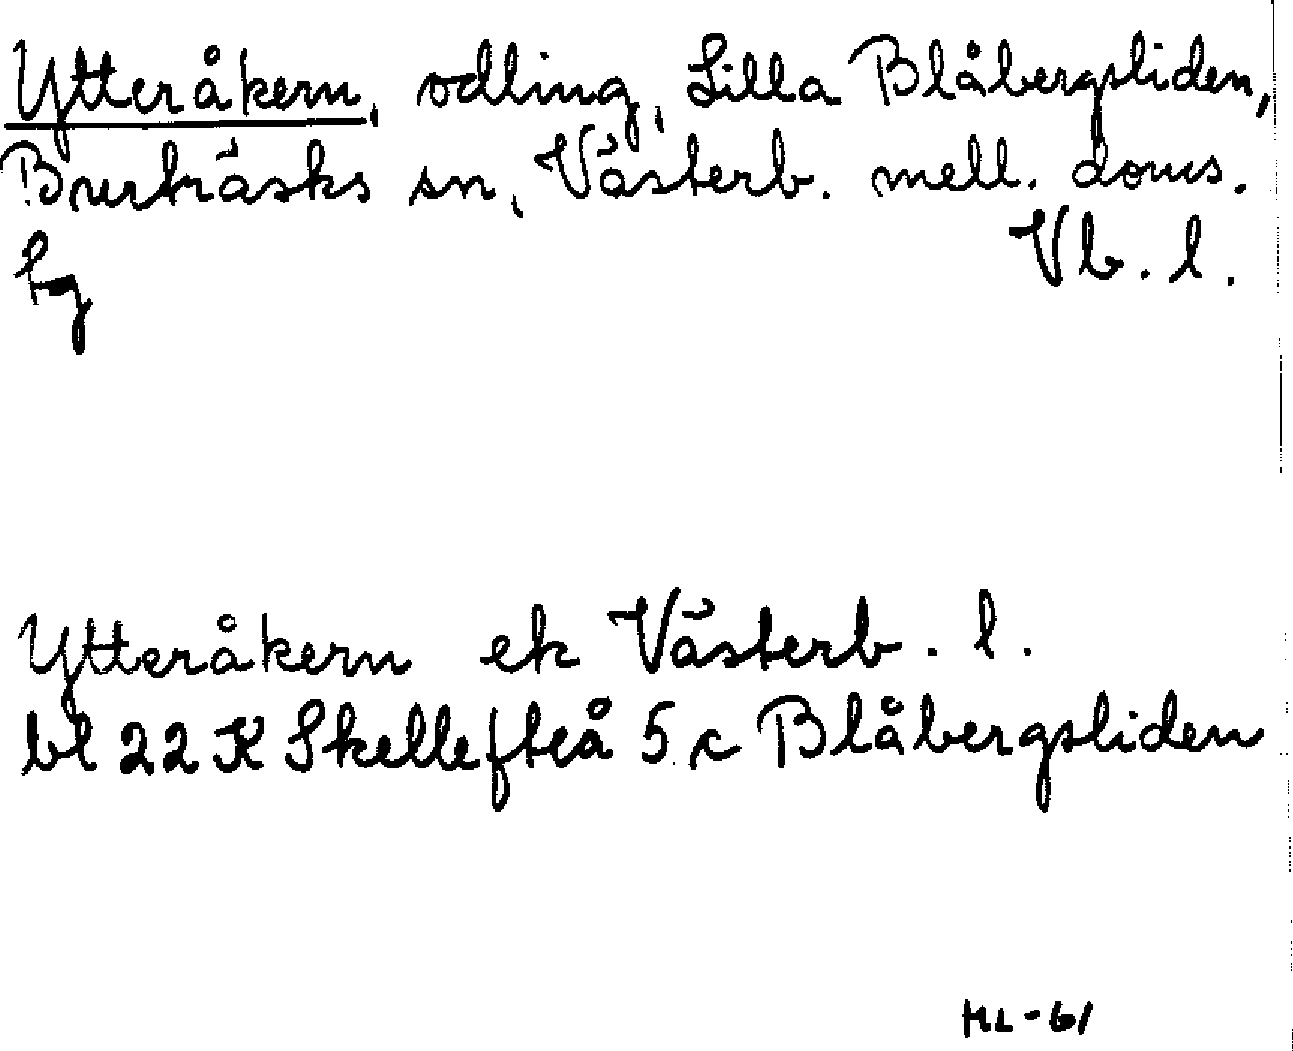 Ytteråkern, odling, Lilla Blåbergsliden,
Burträsks sn, Västerb. mell. doms.
Vb. l.
Ytteråkern ek Västerb. l.
bl 22 K Skellefteå 5 c Blåbergsliden
HL-61